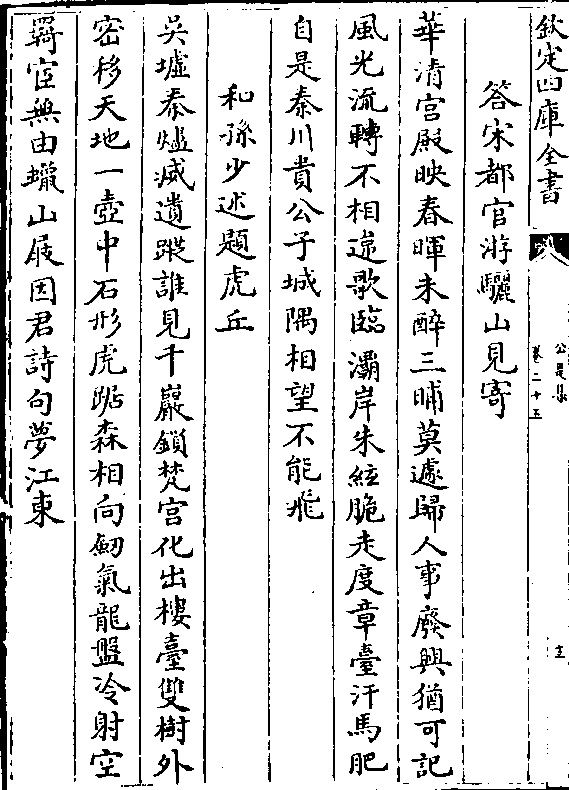 欽定四庫全書
公是集
卷二十五
答宋都官游驪山見寄
華清宮殿映春暉未醉三晡莫遽歸人事廢興猶可記
風光流轉不相違歌臨灞岸朱絃脆走度章臺汗馬肥
自是秦川貴公子城隅相望不能飛
和孫少述題虎丘
吳墟泰爐滅遺蹤誰見千巖鎖梵宮化出樓臺雙樹外
密移天地一壺中石形虎踞森相向劒氣龍盤冷射空
羇宦無由蠟山屐因君詩句夢江東